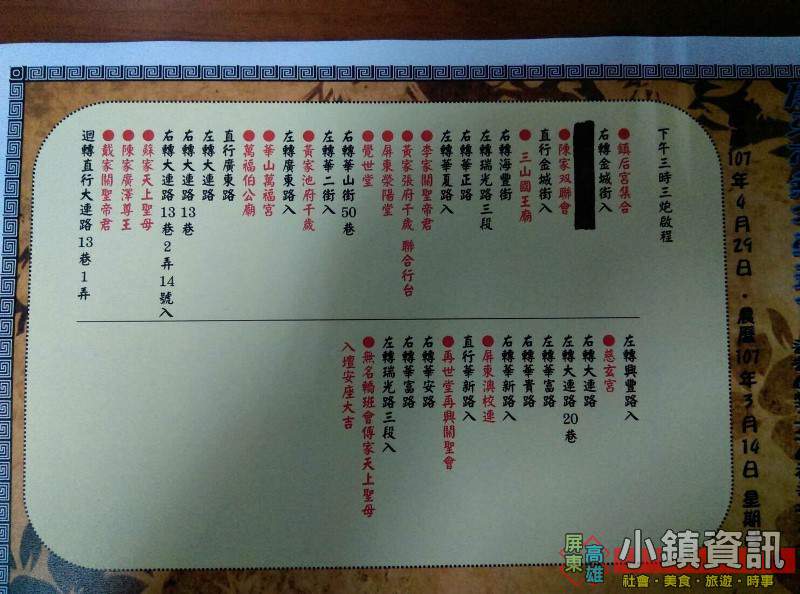 107年4月29日・農曆107年3月14日 星期
下午三時三炮啟程
●鎮后宮集合
右轉金城街入
●陳家双聯會
直行金城街入
●三山國王廟
右轉海豐街
左轉瑞光路三段
右轉華正路
左轉華夏路入
●李家關聖帝君
●黃家張府千歲 聯合行台
●屏東滎陽堂
●覺世堂
右轉華山街50巷
右轉華二街入
●黃家池府千歲
左轉廣東路入
●華山萬福宮
●萬福伯公廟
直行廣東路
左轉大連路
右轉大連路13巷
右轉大連路13巷2弄14號入
●蘇家天上聖母
●陳家廣澤尊王
●戴家關聖帝君
迴轉直行大連路13巷1弄
左轉興豐路入
●慈玄宮
右轉大連路
左轉大連路20巷
左轉華富路
右轉華貴路
右轉華新路入
●屏東澳校連
直行華新路入
●再世堂再興關聖會
右轉華安路
右轉華富路
左轉瑞光路三段入
●無名轎班會傅家天上聖母
入壇安座大吉
屏東
高雄
小鎮資訊
社會・美食・旅遊・時事